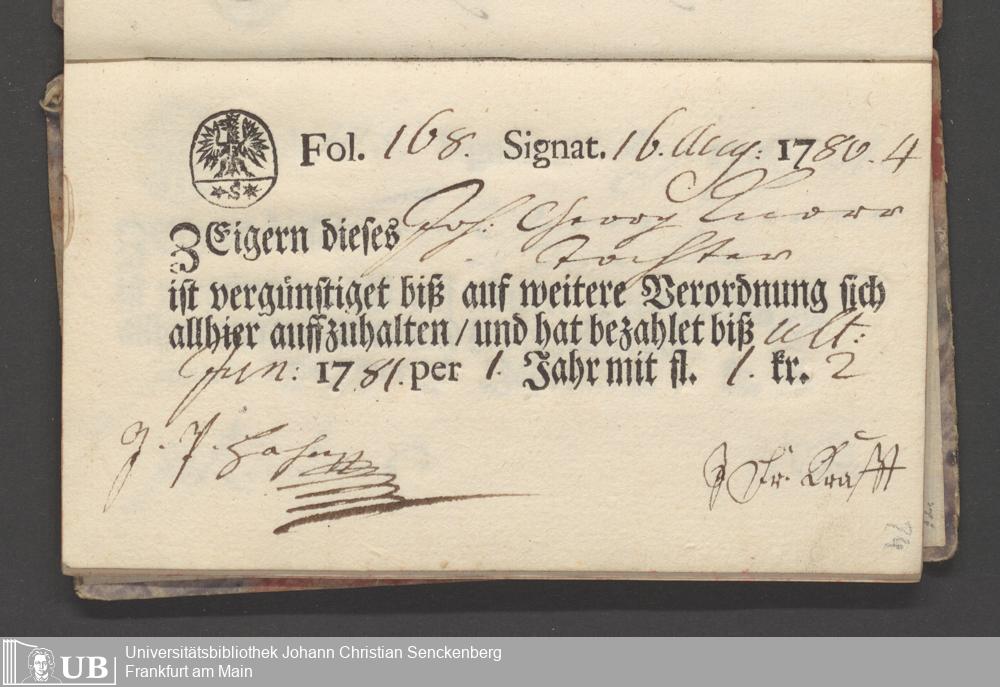 Fol. 168. Signat. 16. Aug: 1780. 4
*S*
Zeigern dieses Joh: Georg Knorr
Tochter
ist vergünstiget biß auf weitere Verordnung sich
allhier auffzuhalten / und hat bezahlet biß ult:
Jun: 1781. per 1. Jahr mit fl. 1. kr. 2
J. P. Hahn
J Fr. Krafft
74
UB
Universitätsbibliothek Johann Christian Senckenberg
Frankfurt am Main